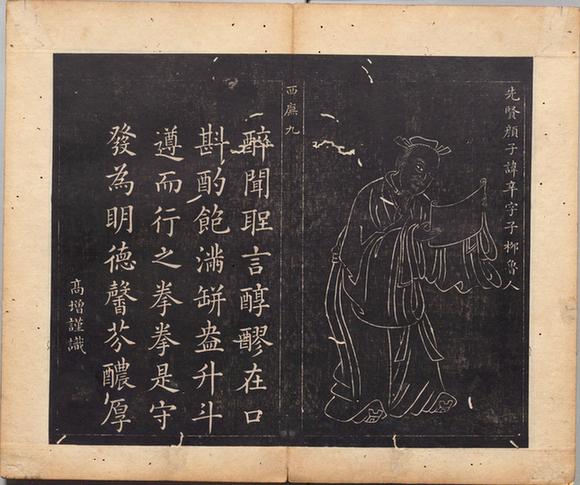 先賢顔子諱辛字子柳魯人
西廡九
醉聞聖言醇醪在口
斟酌飽滿缾盎升斗
遵而行之拳拳是守
發為明德馨芬醲厚
髙增謹識